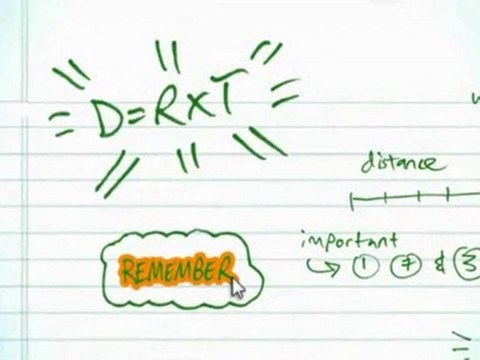 D=RxT
distance
important
REMEMBER
1 7 & 3